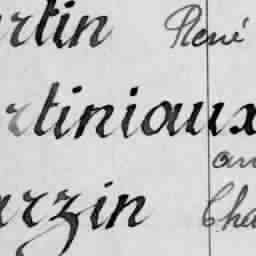 rtin René
rtiniaux
an
arzin Cha